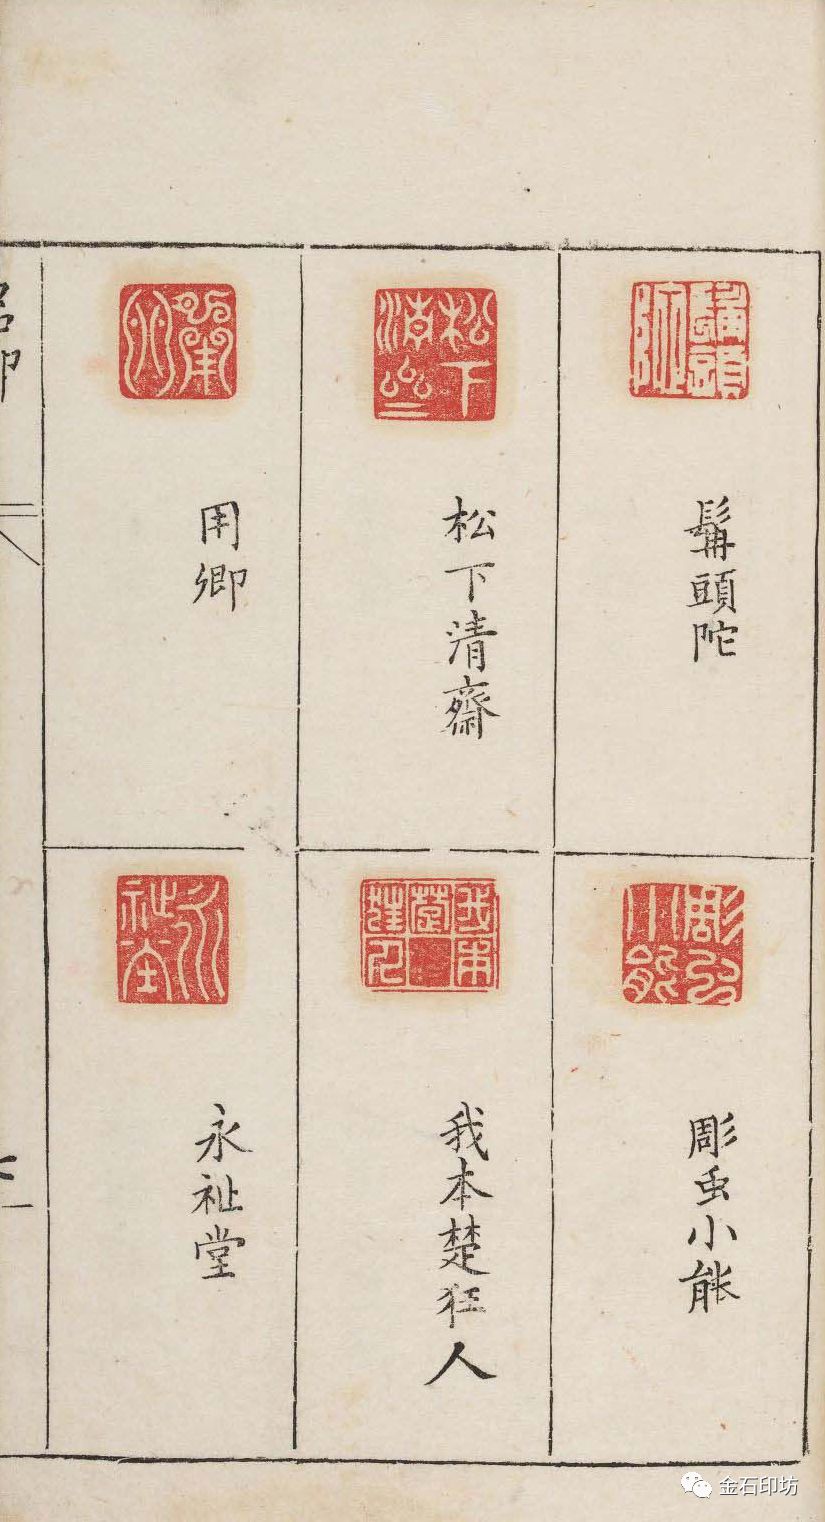 髯頭陀
松下清齋
用卿
彫虫小能
我本楚狂人
永祉堂
金石印坊